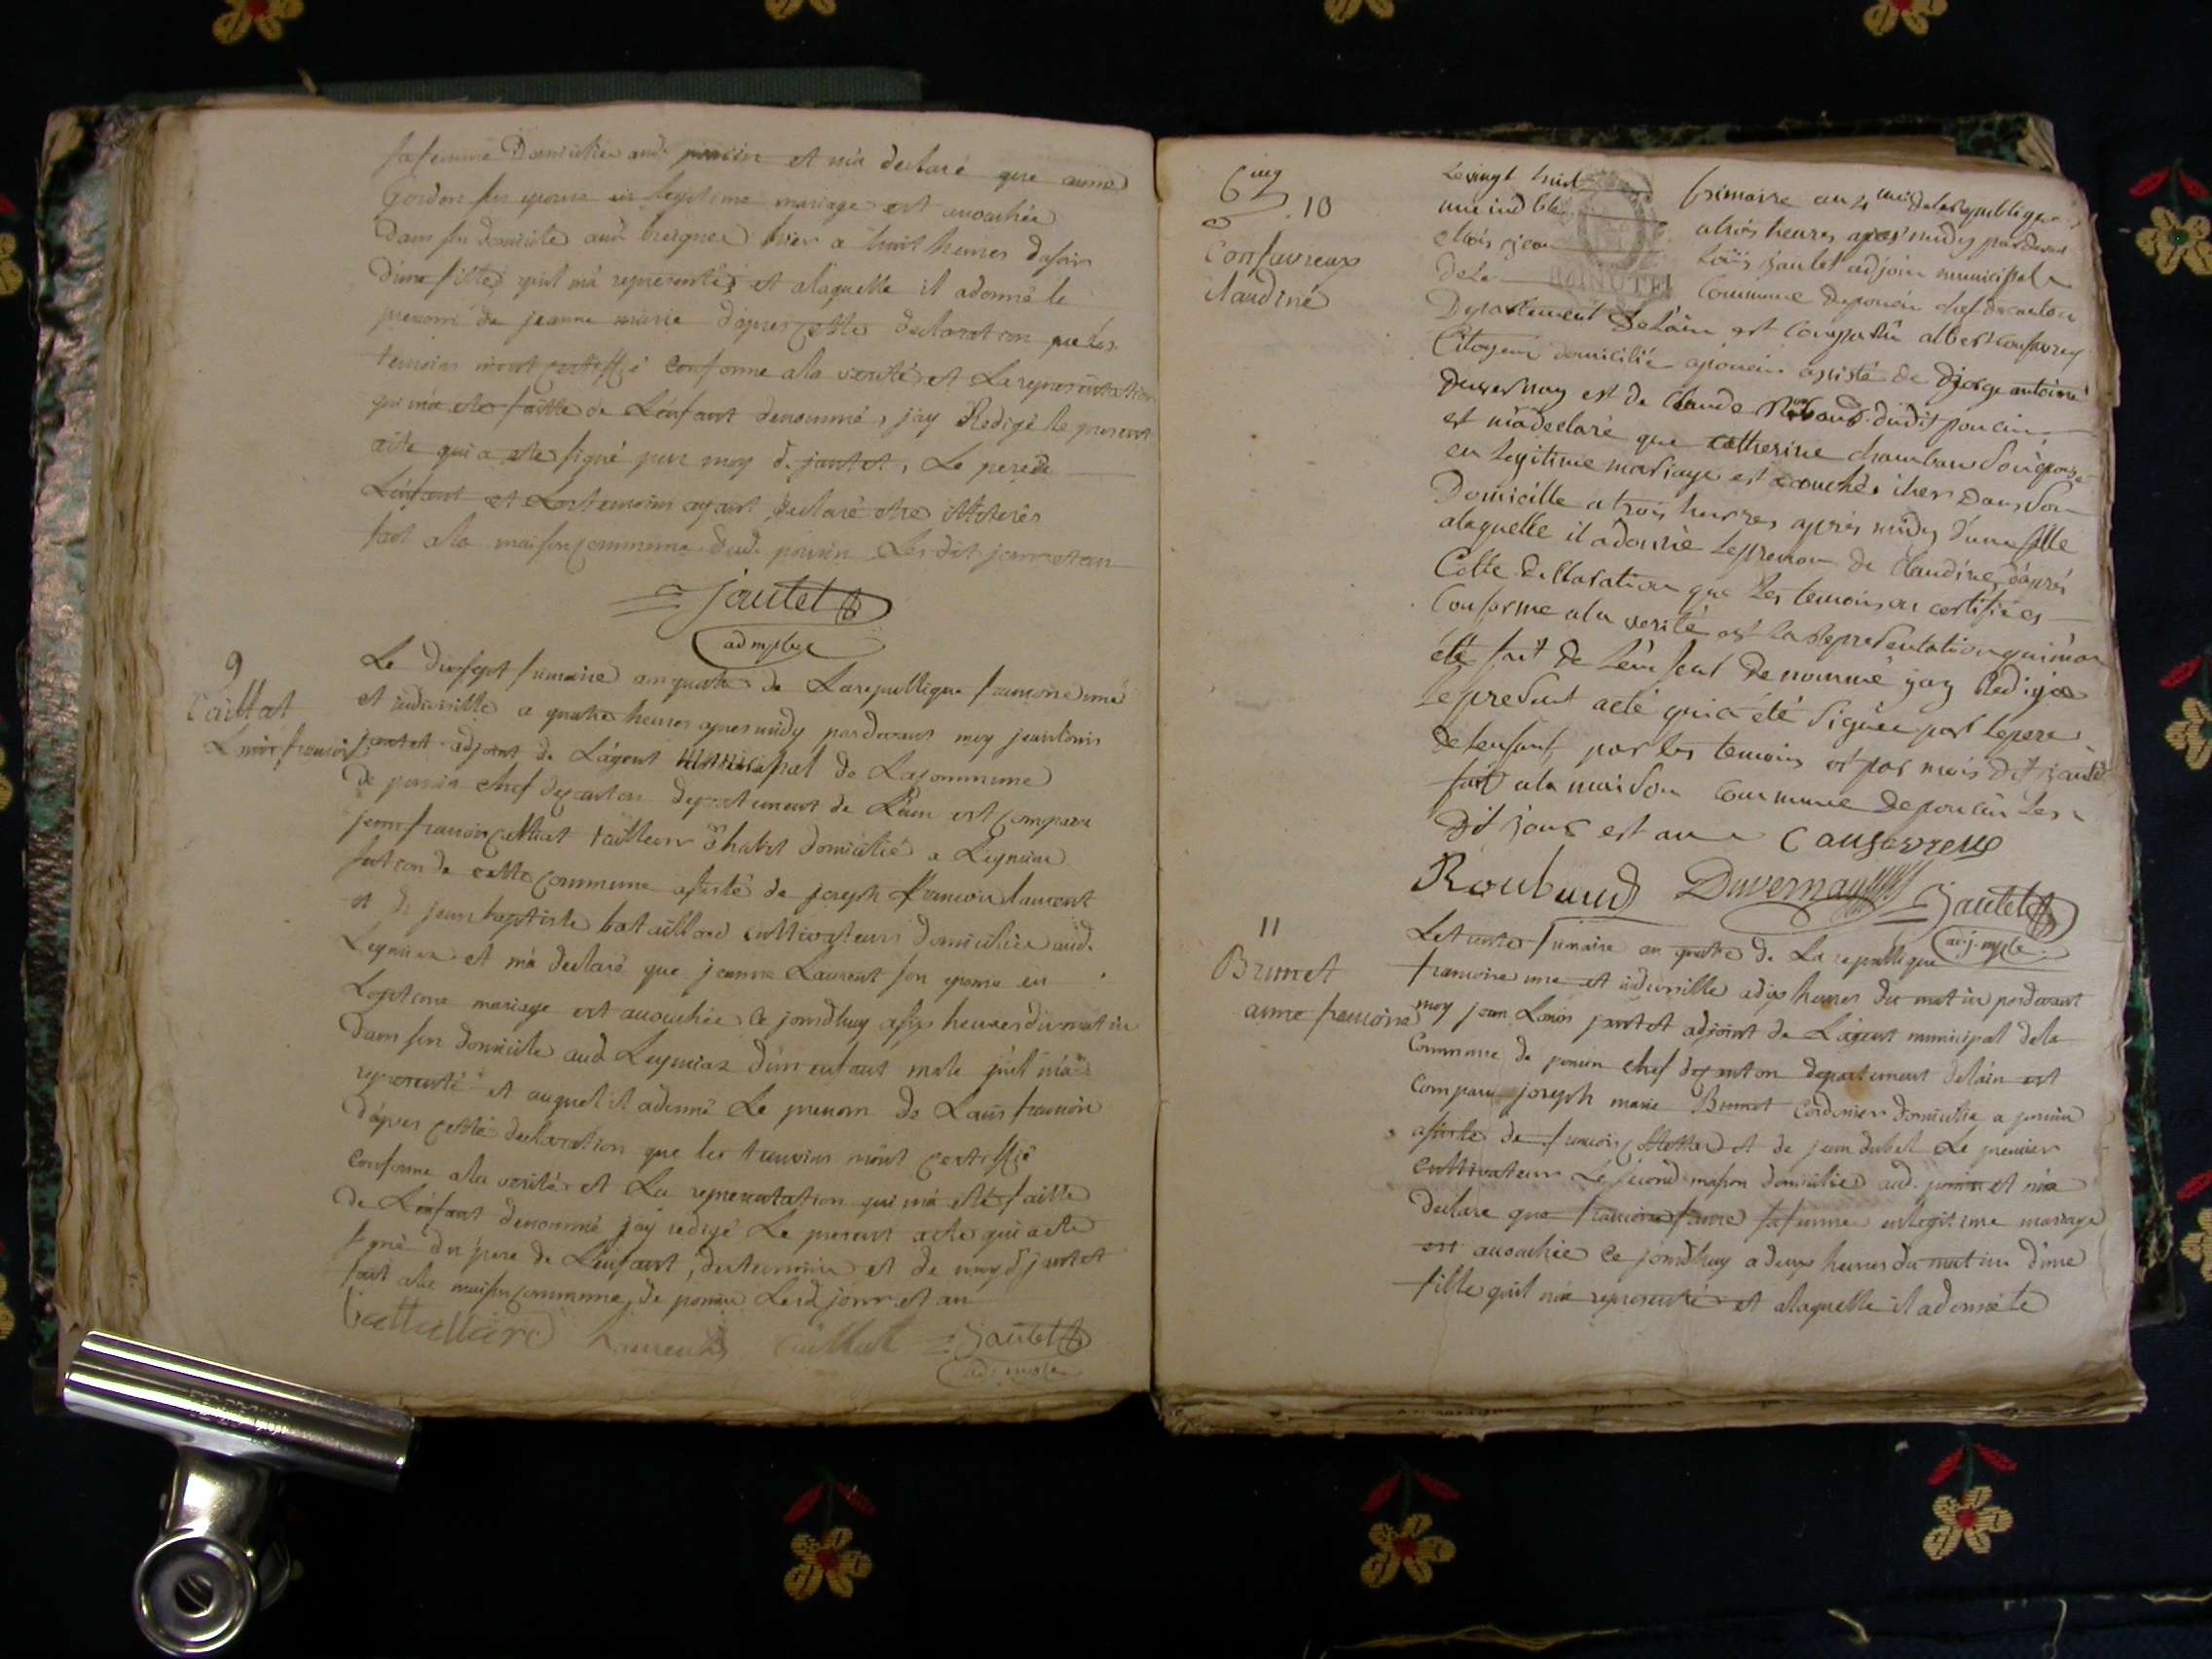 sa femme Domiciliée aud. poncin et m'a declaré que anne
Gordon son epouse en legitime mariage est accouchée
Dans son domicile aud. hier a huit heures dusoir
D'une fille quil m'a representée et alaquelle il adonné le
prenom de jeanne marie d'apres cette declaration que les
temoins m'ont certiffié conforme ala verité et La representation
qui m'a eté faitte de L'enfant denommé, jay Redigé le present
acte qui a eté signé par moy d. jantet, Le pere de
L'enfant et Les temoins ayant declaré etre illiterés
fait ala maison commune dud. poncin Les dit jour et an
jantet
adj mple
9
Caillat
Louis francois
Le dixsept frimaire an quatre de Larepublique francoise une
et indivisible a quatre heures apres midy pardevant moy jean louis
jantet adjoint de L'agent municipal de Lacommune
de poncin chef de canton departement de L'ain est comparu
jean francois Caillat tailleur d'habit domicilié a Leymiaz
section de cette commune assisté de joseph francois laurent
et de jean baptiste bataillard cultivateurs domiciliés aud.
Leymiaz et m'a declaré que jeanne Laurent son epouse en
Legitime mariage est accouchée ce jourdhuy asix heures du matin
Dans son domicile aud Leymiaz d'un enfant male quil m'a
representé et auquel il adonné Le prenom de Louis francois
d'apres cette declaration que les temoins m'ont certiffié
conforme ala verité et La representation qui m'a eté faitte
de L'enfant denommé jay redigé Le present acte qui a eté
signé du pere de L'enfant, des temoins et de moy d. jantet
fait ala maison commune de poncin Lesd. jour et an
battaillard Laurent Caillat jantet
adj. mple
10
Confavreux
Claudine
Le vingt huit frimaire an 4 de la republique
une indble a trois heures apres midy pardevant
Louis jantet adjoin municipal
de La Commune deponcin chef de canton
MINUTE
Departement de L'ain est comparu albert confavreux
Citoyen domicilié aponcin assisté de George antoine
Duvernay est de Claude Roubaud dudit poncin
est m'a declaré que catherine chambau son epouse
en legitime mariage est accouchée ihier Dans son
Domicille a trois heures apres midy d'une fille
alaquelle il adonné le prenom de Claudine, d'apres
Cette Declaration que Les temoins on certifiées
Conforme ala verité est La Representation qui m'a
été fait de L'enfant denommé jay Redigée
Le present acte qui a été signée par le pere
de lenfant, par les temoins est par mois dit jantet
fait ala maison commune de poncin Les
Dit jour est an Confavreux
Roubaud Duvernay jantet
adj. mple
11
Brunet
anne francoise
Le trente frimaire an quatre de La republique
francoise une et indivisible adix heures du matin pardevant
moy jean Louis jantet adjoint de L'agent municipal de la
Commune de poncin chef de canton departement de lain est
Comparu joseph marie Brunet Cordonier domicilié a poncin
assisté de francois et de jean dubet Le premier
cultivateur Le second mason domiciliés aud. poncin et m'a
declare que francoise sa femme en legitime mariage
est accouchée ce jourdhuy a deux heures du matin d'une
fille quil m'a representé et alaquelle il adonné le